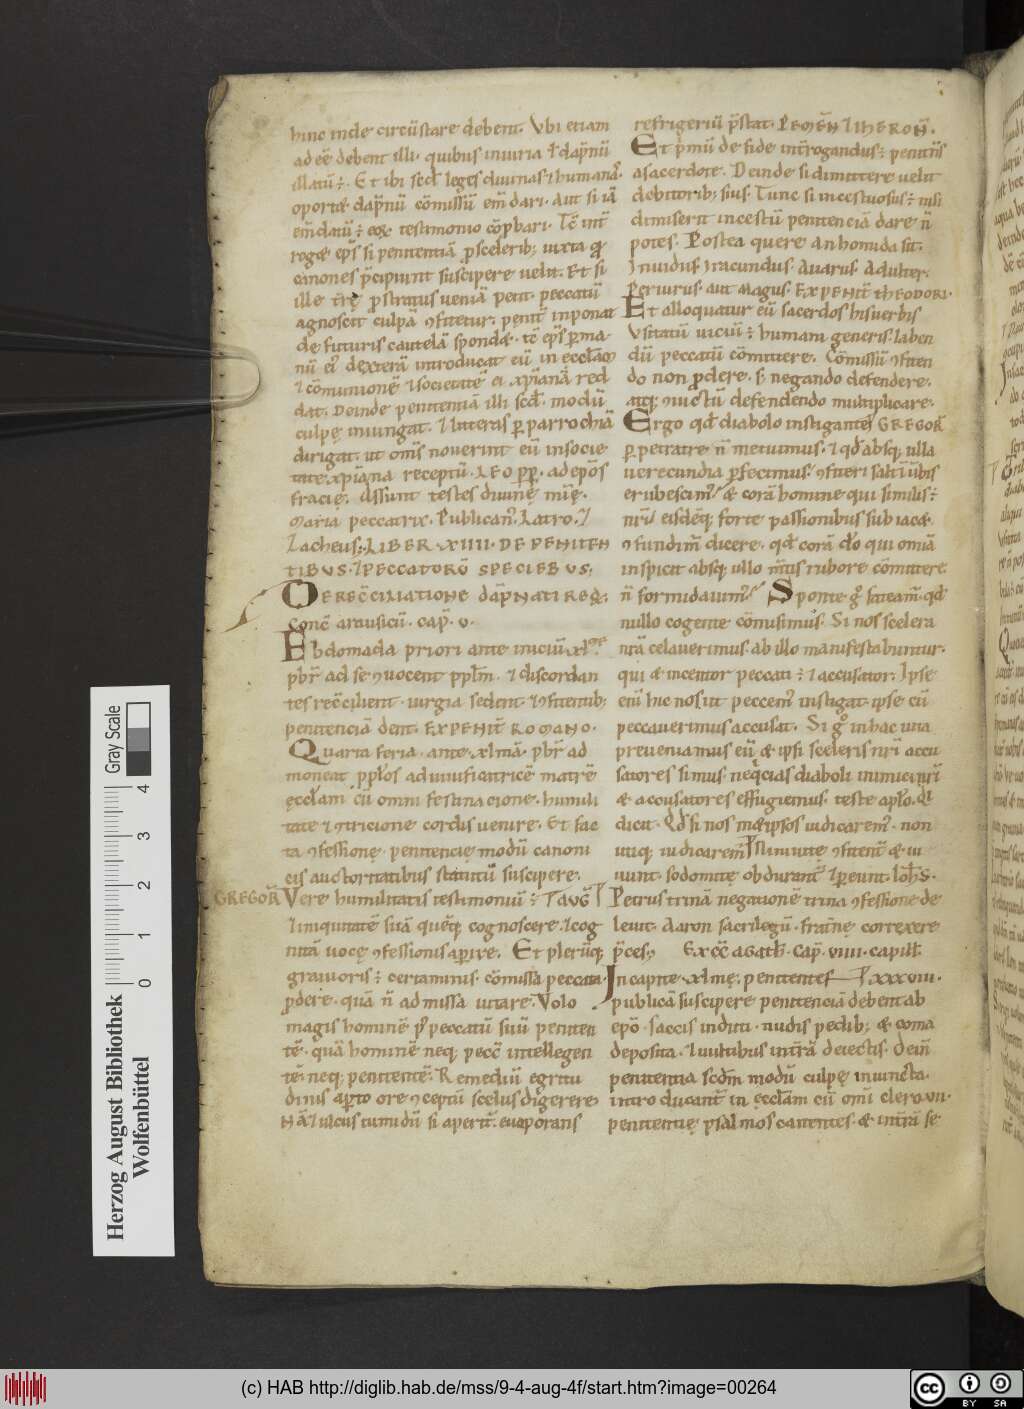 hinc inde circūstare debent. Vbi etiam
ad eē debent illi. quibus iniuria ł dāpnū
illatū ÷. Et ibi scđ leges diuinas ⁊ humanas
oportet dāpnū cōmissū em̄dari. aut si iā
em̄datū ÷ testimonio cōpbari. Tē int̄
roget ep̄s si penitentiā ꝓ scelerib; iuxta qđ
canones p̄cipiunt suscipere uelit. Et si
ille prostratus ueniā petit. peccatū
agnoscit culpā ꝯfitetur. penit̄ inponat
de futuris cautelā spondet. tē ep̄s
nū ei dexterā introducat eū in eccłam
⁊ cōmunionē ⁊ societatē ei xp̄ianā red
dat. Deinde penitentiā illi scđ. modū
culpę iniungat. ⁊ litteras ꝑ parrochiā
dirigat. ut om̄s nouerint eū in socie
tate xp̄iana receptū. LEO PP. ad ep̄os
fracię. Assunt testes diuinę mīę.
Maria peccatrix. Publican9. Latro. ⁊
Zacheus; LIBER XIIII. DE PENITEN
TIBVS. ⁊ PECCATORŪ SPECIEBVS;
DE RECC̄ILIATIONE DĀPNATI REG;
Conc̄ arausicū. cap̄. v.
Ebdomada priori ante iniciū xl
pbr̄ ad se ꝯuocent pplm̄. ⁊ discordan
tes recc̄ilient. iurgia sedent ⁊ ꝯfitentib;
penitenciā dent. EX PENIT̄ ROMANO.
Quarta feria. ante xlmā. pbr̄ ad
moneat ppłos ad uiuificatricē matrē
ęccłam cū omni festinacione. humili
tate ⁊ ꝯtricione cordis uenire. Et fac
ta ꝯfessionę. penitencię modū canoni
cis auctoritatibus statutū suscipere.
GREGOR̄ Vere humilitatis testimoniū ÷ ⁊ AVḠ
⁊ iniquitatē suā quēq; cognoscere. ⁊ cog
nitā uocę ꝯfessionis aperire. Et plerūq;
grauioris ÷ certaminis. cōmissa peccata.
ꝓdere. quā n̄ admissa uitare. Volo
magis hominē p̄ peccatū suū peniten
tē. quā hominē neq; pecc̄ intellegen
tē. neq; penitentē. Remediū egritu
dinis apto ore ꝯceptū scelus digerere
NĀ ⁊ ulcus tumidū si aperit̄. euaporans
refrigeriū p̄stat. PENITEN ⁊ IHERON̄.
Et p̄mū de fide int̄rogandus ÷ penitn̄s
a sacerdote. Deinde si dimittere uelit
debitorib; suis. Tunc si incestuosus ÷ nisi
dimiserit incestū penitenciā dare n̄
potes. Postea quere an homida sit.
Inuidus. Iracundus. Auarus. Adulter.
Periurus. aut Magus. EX PENIT̄ THEODORI.
Et alloquatur eū sacerdos his uerbis
Vsitatū uiciū ÷ humani generis. laben
dū peccatū cōmittere. Cōmissū ꝯfiten
do non ꝓdere. s; negando defendere.
atq; ꝯuictū defendendo multiplicare.
Ergo qđ diabolo instigante GREGOR̄
ꝑpetrare n̄ metuimus. ⁊ qđ absq; ulla
uerecundia ꝑfecimus. ꝯfiteri saltī uerbis
erubescim9 & corā homine qui similis ÷
nr̄i eisdēq; forte passionibus subiacet.
ꝯfundim̄ dicere. qđ corā đo qui omiā
inspicit absq; ullo rubore cōmittere
n̄ formidauim9. Sponte gͦ fateam̄. qđ
nullo cogente cōmisimus. Si nos scelera
nr̄a celauerimus. ab illo manifestabuntur.
qui & incentor peccati ÷ ⁊ accusator. Ipse
eni hic nos ut peccem9 instigat. ipse cū
peccauerimus accusat. Si gͦ in hac uita
preueniamus eū & ipsi sceleris nr̄i accu
satores simus. neq̄cias diaboli inimici nr̄i
& accusatores effugiemus. teste apło. Qi
dicit. Qđ si nos metipsos iudicarem9. non
utiq; iudicarem9. Nimiūte ꝯfitent̄ & ui
uunt. sodomite obdurant̄ ⁊ pereunt. IOHS.
Petrus trinā negationē trina ꝯfessione de
leuit. Aaron sacrilegū. fratr̄ne correxere
p̄ces; EX CC̄ AGATH̄. cap̄. viiii. capill̄.
In capite xlmę; penitentes ⁊ xxxviii.
publicā suscipere penitenciā debent ab
epō. saccis induti. nudis pedib; & coma
deposita. ⁊ uultibus int̄rā deiectis. Dein̄
penitentia scdm̄ modū culpę iniuncta.
introducant̄ in ęccłam cū om̄i clero. vii.
penitentię psalmos canentes. & int̄rā se
Gray Scale
0 1 2 3 4
Herzog August Bibliothek
Wolfenbüttel
(c) HAB http://diglib.hab.de/mss/9-4-aug-4f/start.htm?image=00264
cc BY SA